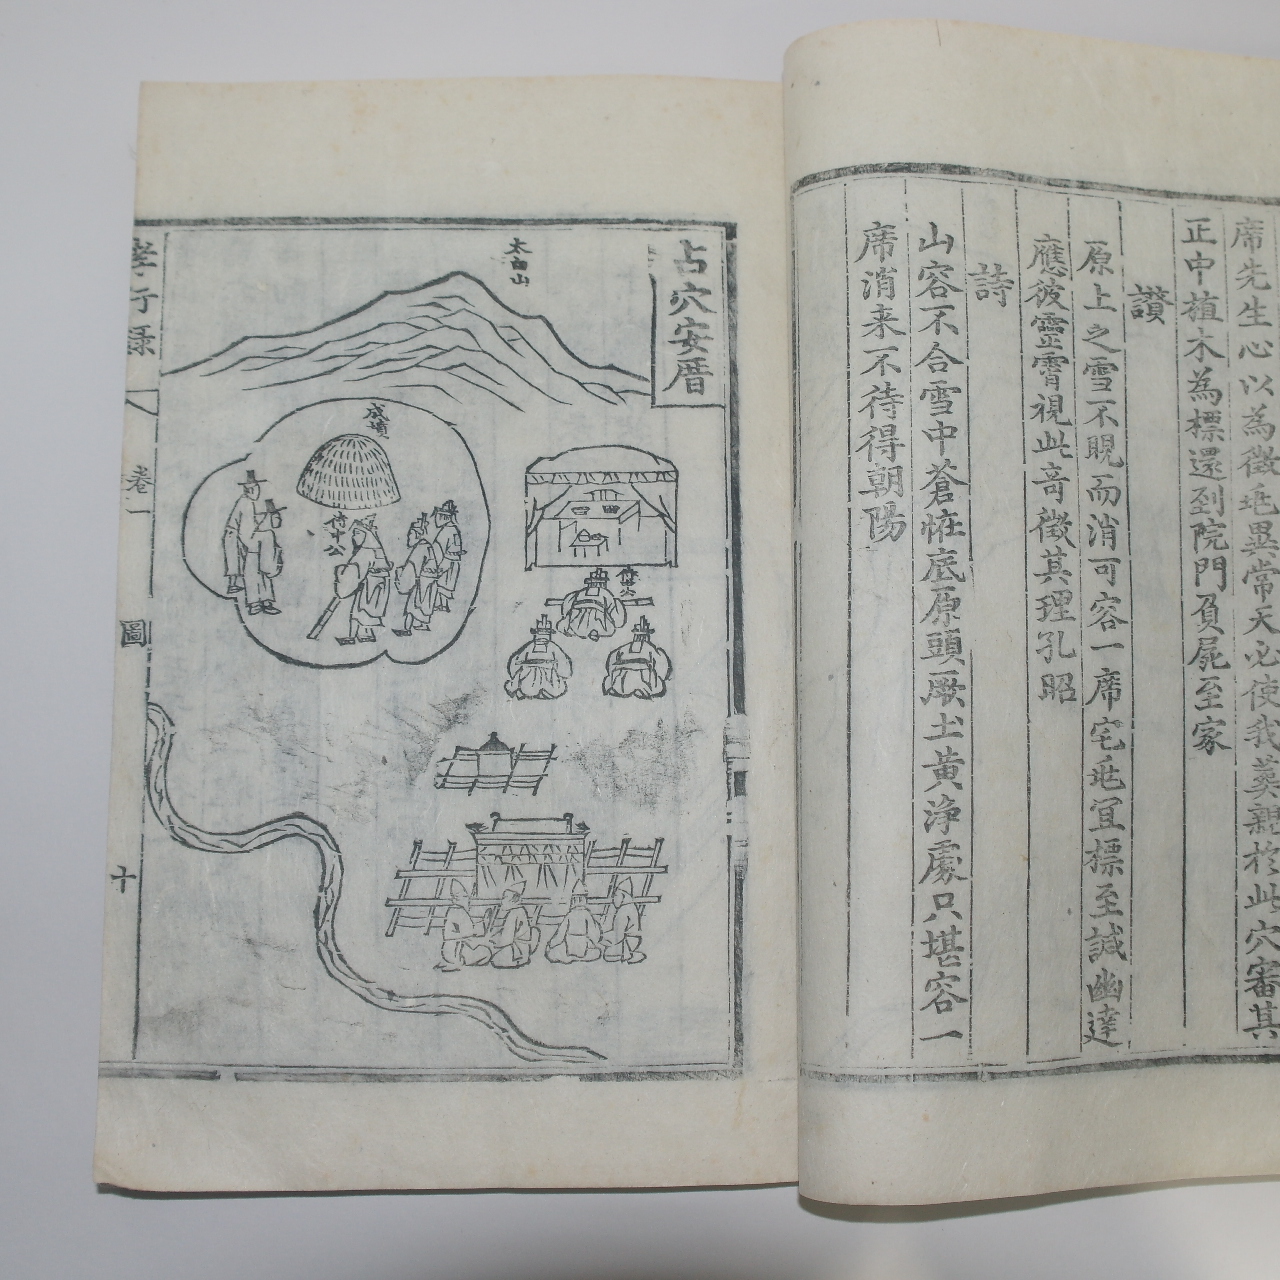 席先生心以為徵兆異常天必使我葬親於此穴審其
正中植木為標還到院門負屍至家
讃
原上之雪不晛而消可容一席宅兆宜標至誠幽達
應彼靈霄視此竒徵其理孔昭
詩
山容不合雪中蒼恠底原頭一厥土黄浄處只堪容一
席消来不待得朝陽
占穴安厝
太白山
成墳
侍中公
孝行錄
卷一
圖
十